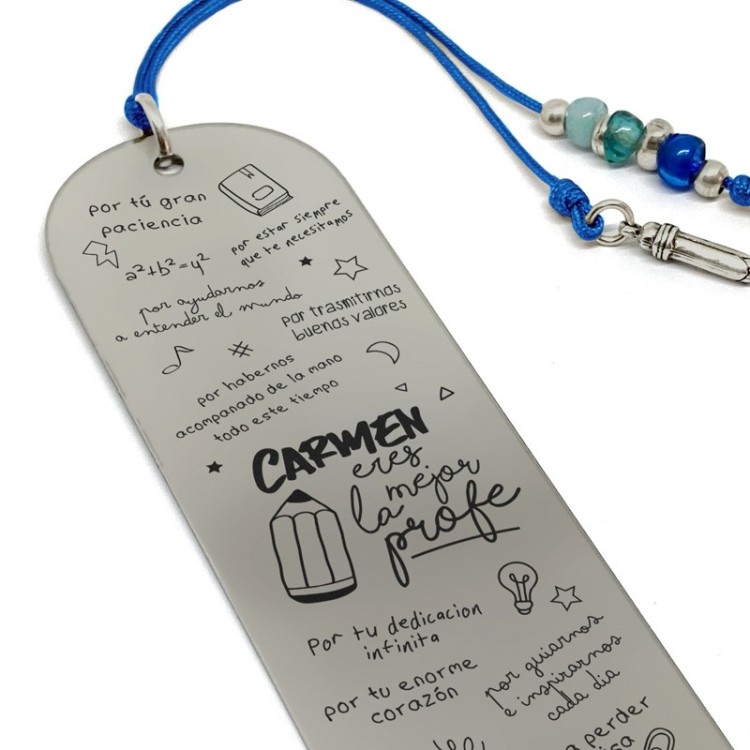 por tú gran
paciencia
por estar siempre
que te necesitamos
a²+b²=y²
por ayudarnos
a entender el mundo
por trasmitirnos
buenos valores
por habernos
acompanado de la mano
todo este tiempo
CARMEN
eres
la mejor
profe
por tu dedicacion
infinita
por tu enorme
corazón
por guiarnos
e inspirarnos
cada dia
perder